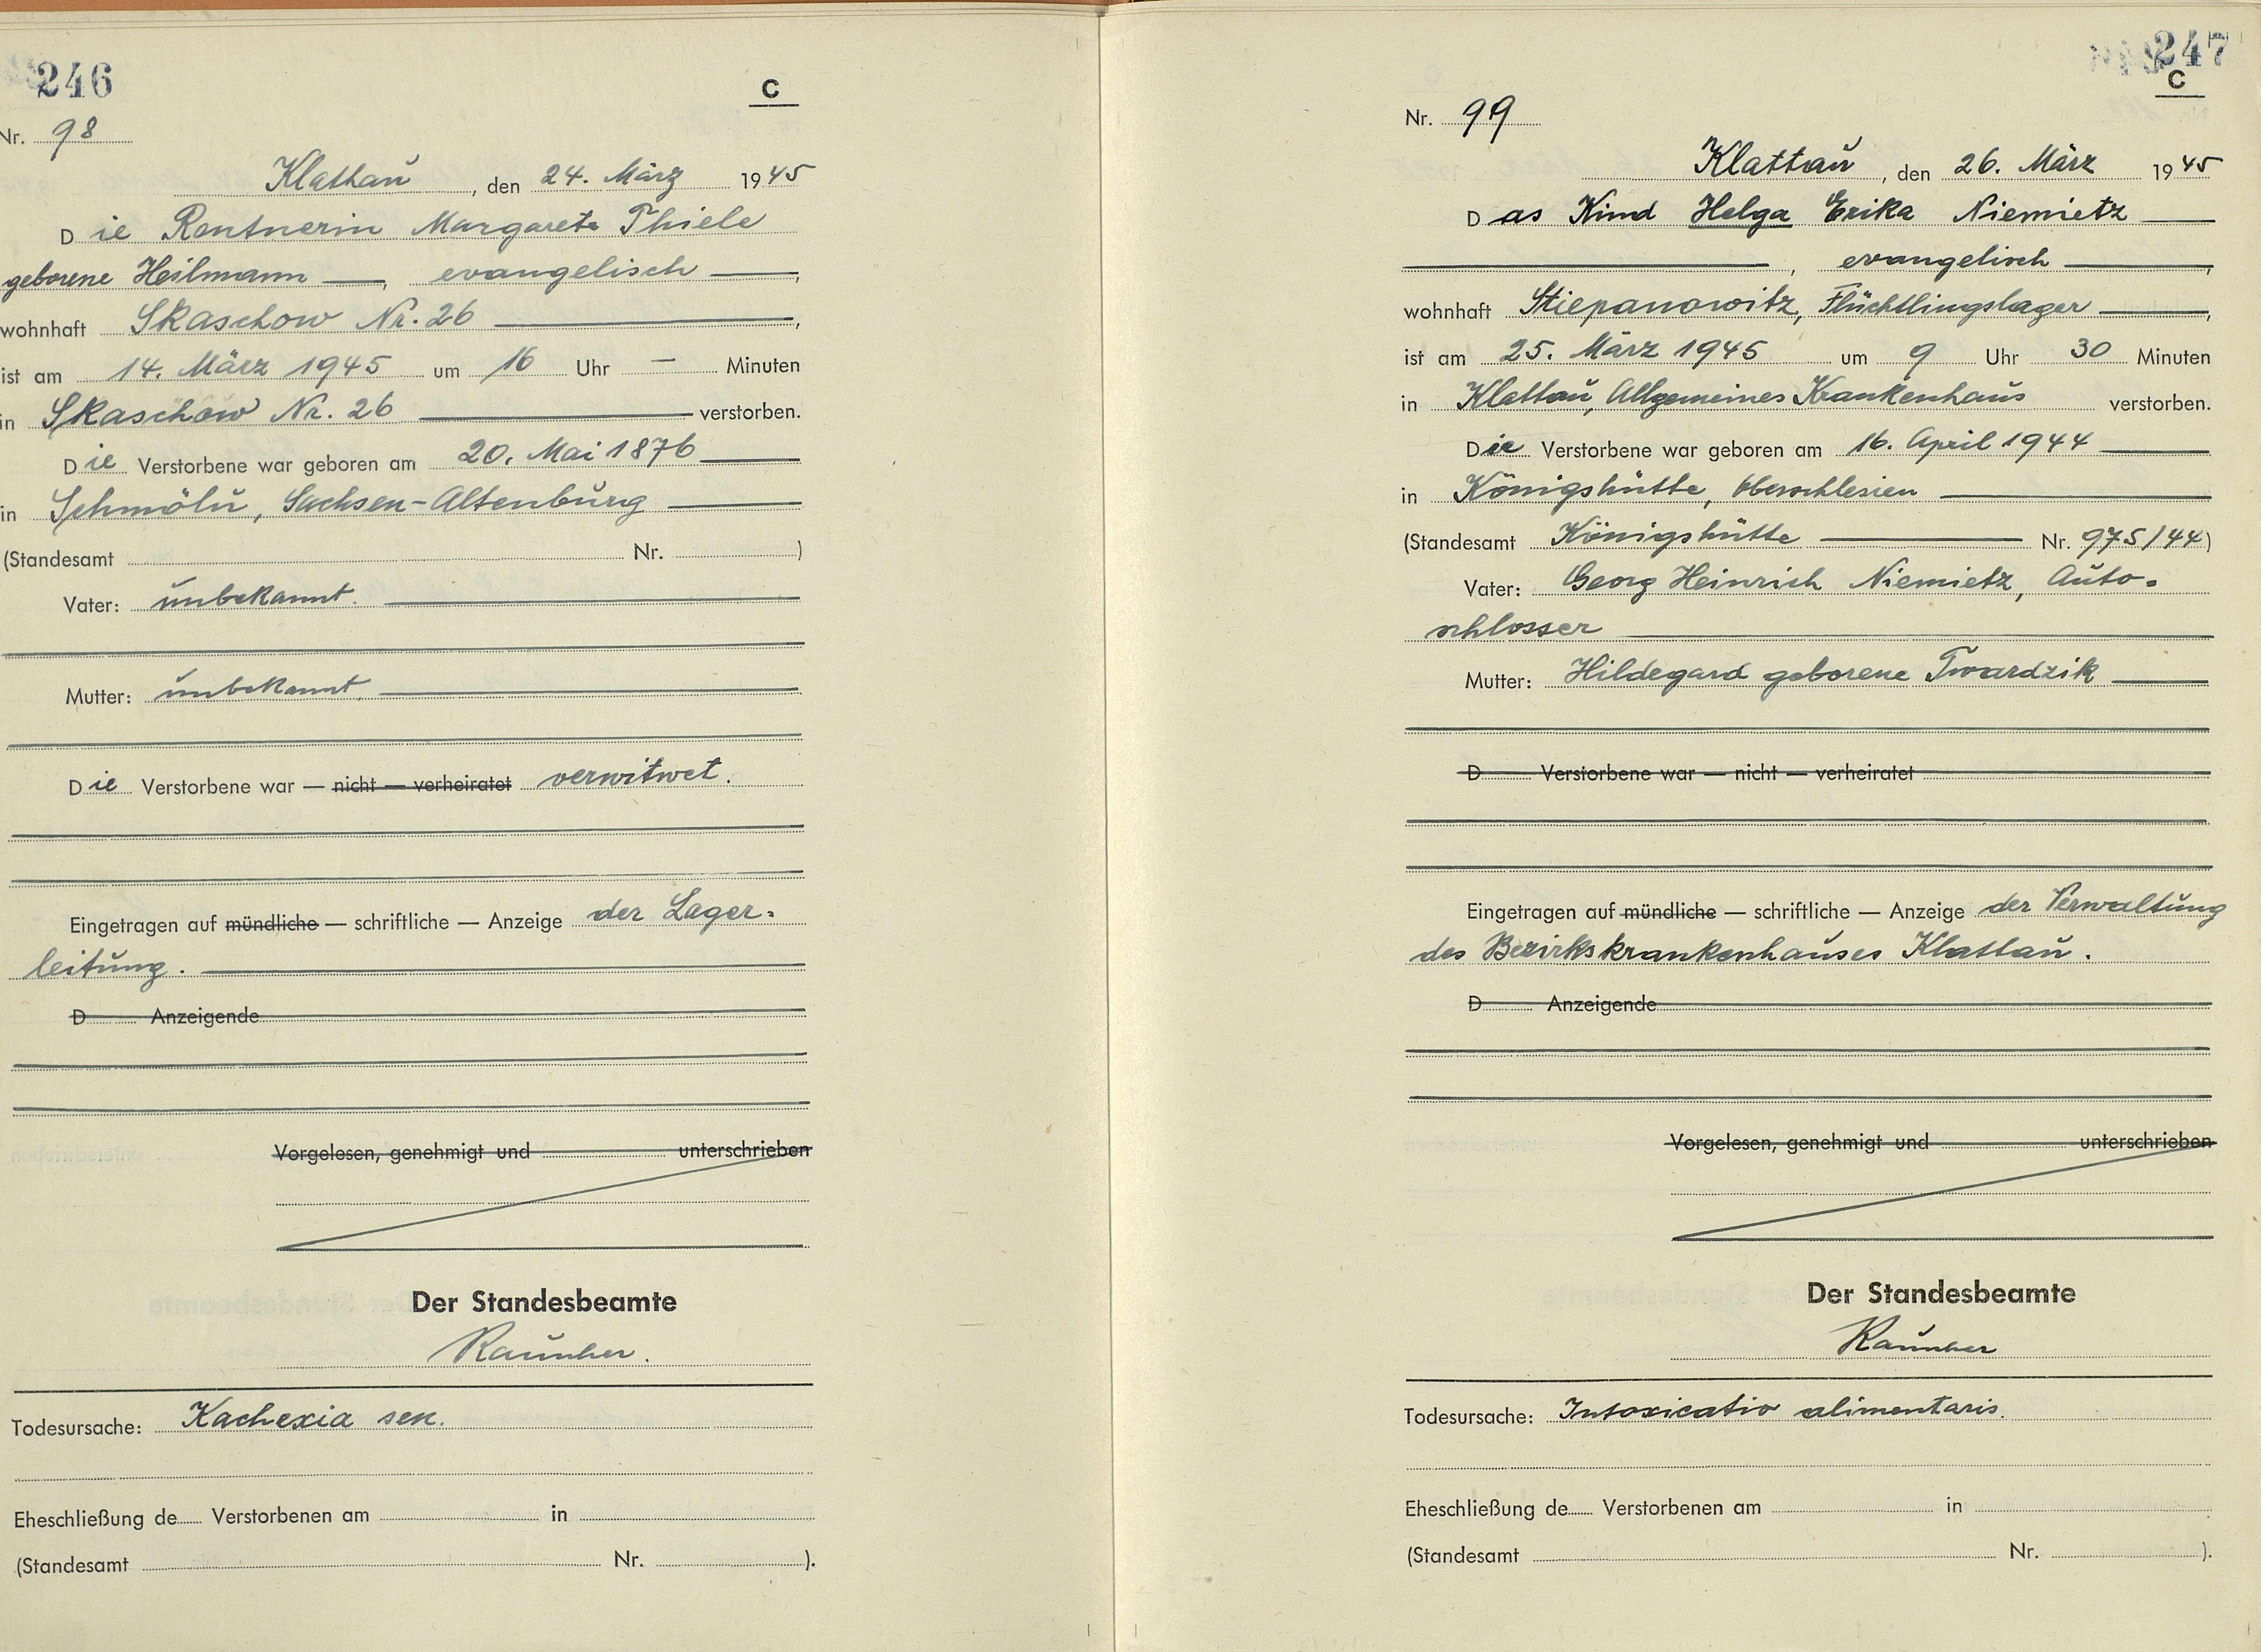 246
C
Nr. 98
Klattau, den 24. März 1945
Die Rentnerin Margarete Thiele
geborene Heilmann —, evangelisch —,
wohnhaft Skaschow Nr. 26 —,
ist am 14. März 1945 um 16 Uhr — Minuten
in Skaschow Nr. 26 — verstorben.
Die Verstorbene war geboren am 20. Mai 1876 —
in Schmölln, Sachsen-Altenburg —
(Standesamt Nr. )
Vater: unbekannt. —
Mutter: unbekannt. —
Die Verstorbene war — nicht — verheiratet verwitwet.
Eingetragen auf mündliche — schriftliche — Anzeige der Lager-
leitung. —
D Anzeigende
Vorgelesen, genehmigt und unterschrieben
Der Standesbeamte
Todesursache: Kachexia sen.
Eheschließung de Verstorbenen am in
(Standesamt Nr. ).
247
C
Nr. 99
Klattau, den 26. März 1945
Das Kind Helga Erika Niemietz —
—, evangelisch —,
wohnhaft Stiepanowitz, Flüchtlingslager —,
ist am 25. März 1945 um 9 Uhr 30 Minuten
in Klattau, Allgemeines Krankenhaus verstorben.
Die Verstorbene war geboren am 16. April 1944 —
in Königshütte, Oberschlesien —
(Standesamt Königshütte — Nr. 975/44)
Vater: Georg Heinrich Niemietz, Auto-
schlosser —
Mutter: Hildegard geborene Twardzik —
D Verstorbene war — nicht — verheiratet
Eingetragen auf mündliche — schriftliche — Anzeige der Verwaltung
des Bezirkskrankenhauses Klattau.
D Anzeigende
Vorgelesen, genehmigt und unterschrieben
Der Standesbeamte
Todesursache: Intoxicatio alimentaris.
Eheschließung de Verstorbenen am in
(Standesamt Nr. ).